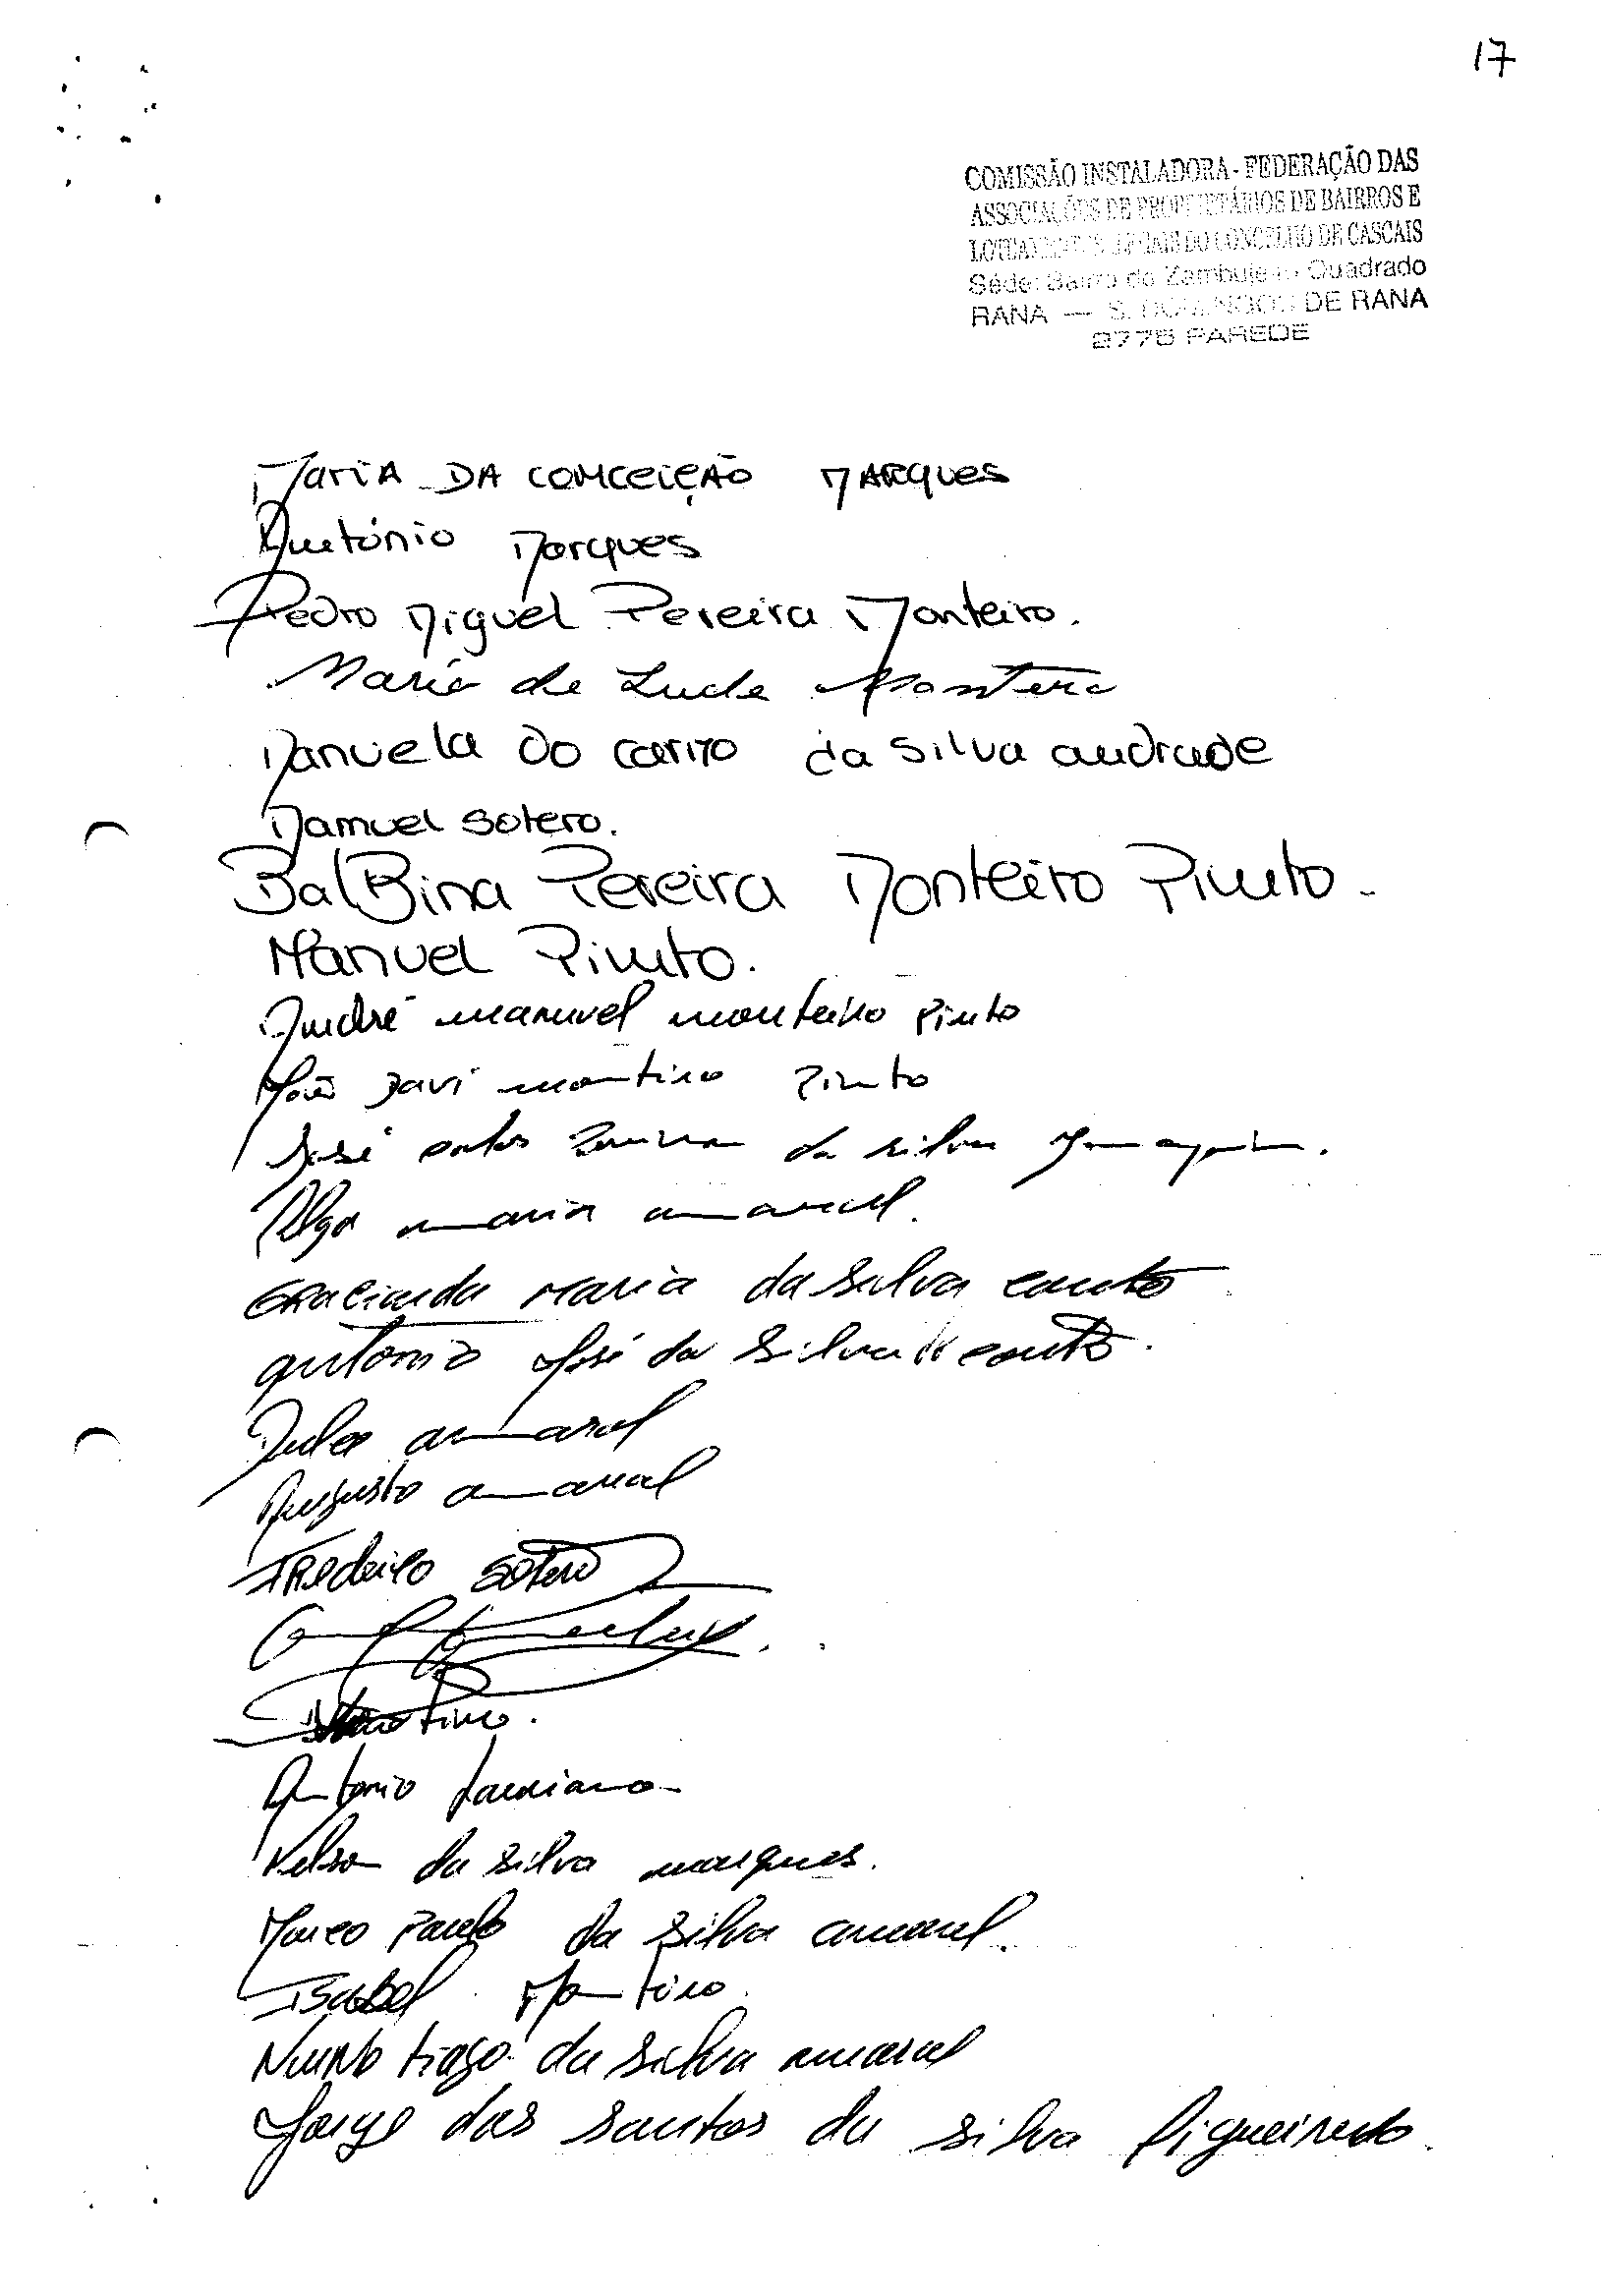 17
COMISSÃO INSTALADORA - FEDERAÇÃO DAS
ASSOCIAÇÕES DE PROPRIETÁRIOS DE BAIRROS E
DO CONCELHO DE CASCAIS
Séde: Bairro do Zambujeiro Quadrado
RANA — S. DOMINGOS DE RANA
2775 PAREDE
Maria DA COMCEIÇÃO MARQUES
António Marques
Pedro Miguel Pereira Monteiro.
Maria de Lude
Manuela do carmo da silva andrade
Manuel sotero.
BalBina Pereira Monteiro Pinto.
Manuel Pinto.
André manuel monteiro Pinto
João Davi montiro Pinto
José da silva
Olga maria amaral.
Gracinda Maria da silva couto
antonio José da Silva couto.
amaral
Augusto amaral
Frederico sotero
Antonio
Nelson da silva marques.
Marco Paulo da silva amaral.
Isabel Montiro.
NuNo tiago da silva amaral
Jorge das santos da silva figueiredo.